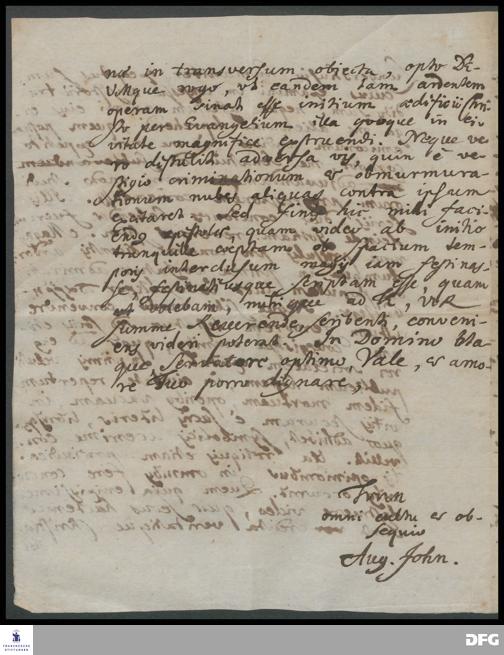 næ in transversum objecta, opto Di-
vosque rogo, vt eandem tam ardentem
operam sinat esse initium ædificii Chri-
sto per Evangelium illa quoque in ci-
vitate magnifice exstruendi. Neque ve-
ro distulit adversa vis, quin e ve-
stigio criminationum et obmurmura-
tionum nubes aliquas contra ipsum
excitaret. Sed finis hic mihi faci-
endus epistolæ, quam video ab initio
tranquille cœptam ob spacium tem-
poris interclusum magis iam festinas-
se, festinatiusque scriptam esse, quam
vel volebam, mihique ad Te, Vir
summe Reverende, scribenti, conveni-
ens videri poterat. In Domino Ita-
que Servatore optimo Vale, et amo-
re Tuo porro dignare,
Tuum
omni cultu et ob-
sequio
Aug. John.
FRANCKESCHE
STIFTUNGEN
DFG